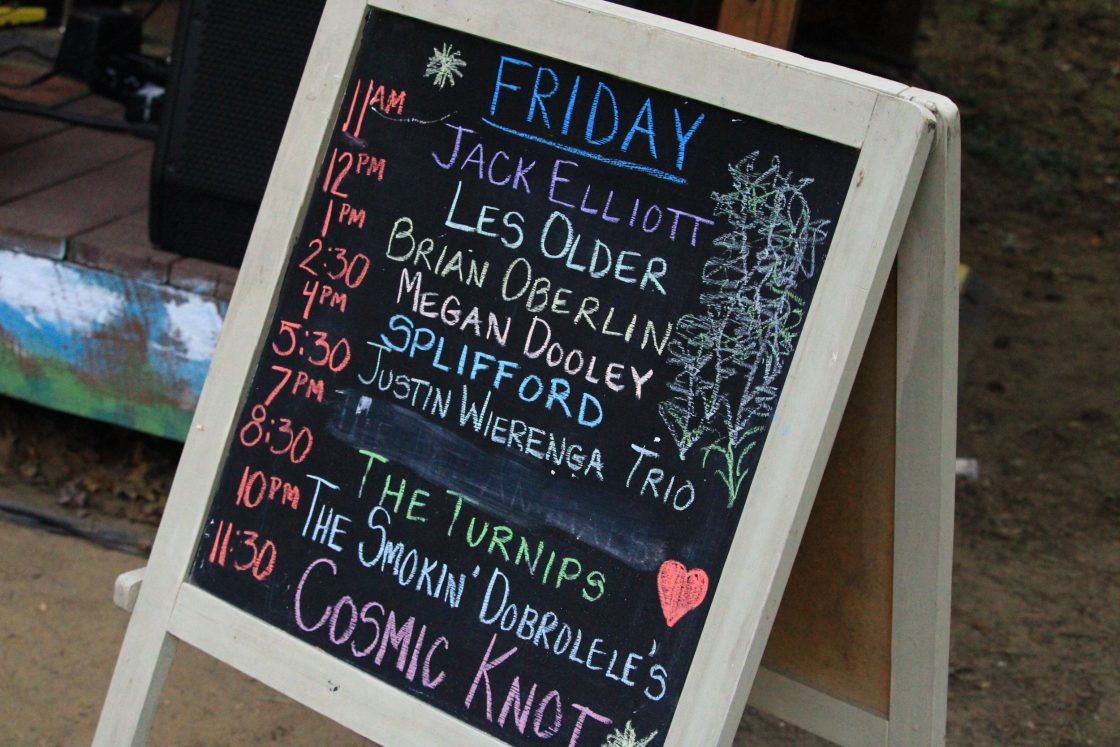 FRIDAY
11AM JACK ELLIOTT
12PM LES OLDER
1PM BRIAN OBERLIN
2:30 MEGAN DOOLEY
4PM SPLIFFORD
5:30 JUSTIN WIERENGA TRIO
7PM
8:30 THE TURNIPS
10PM THE SMOKIN' DOBROLELE'S
11:30 COSMIC KNOT